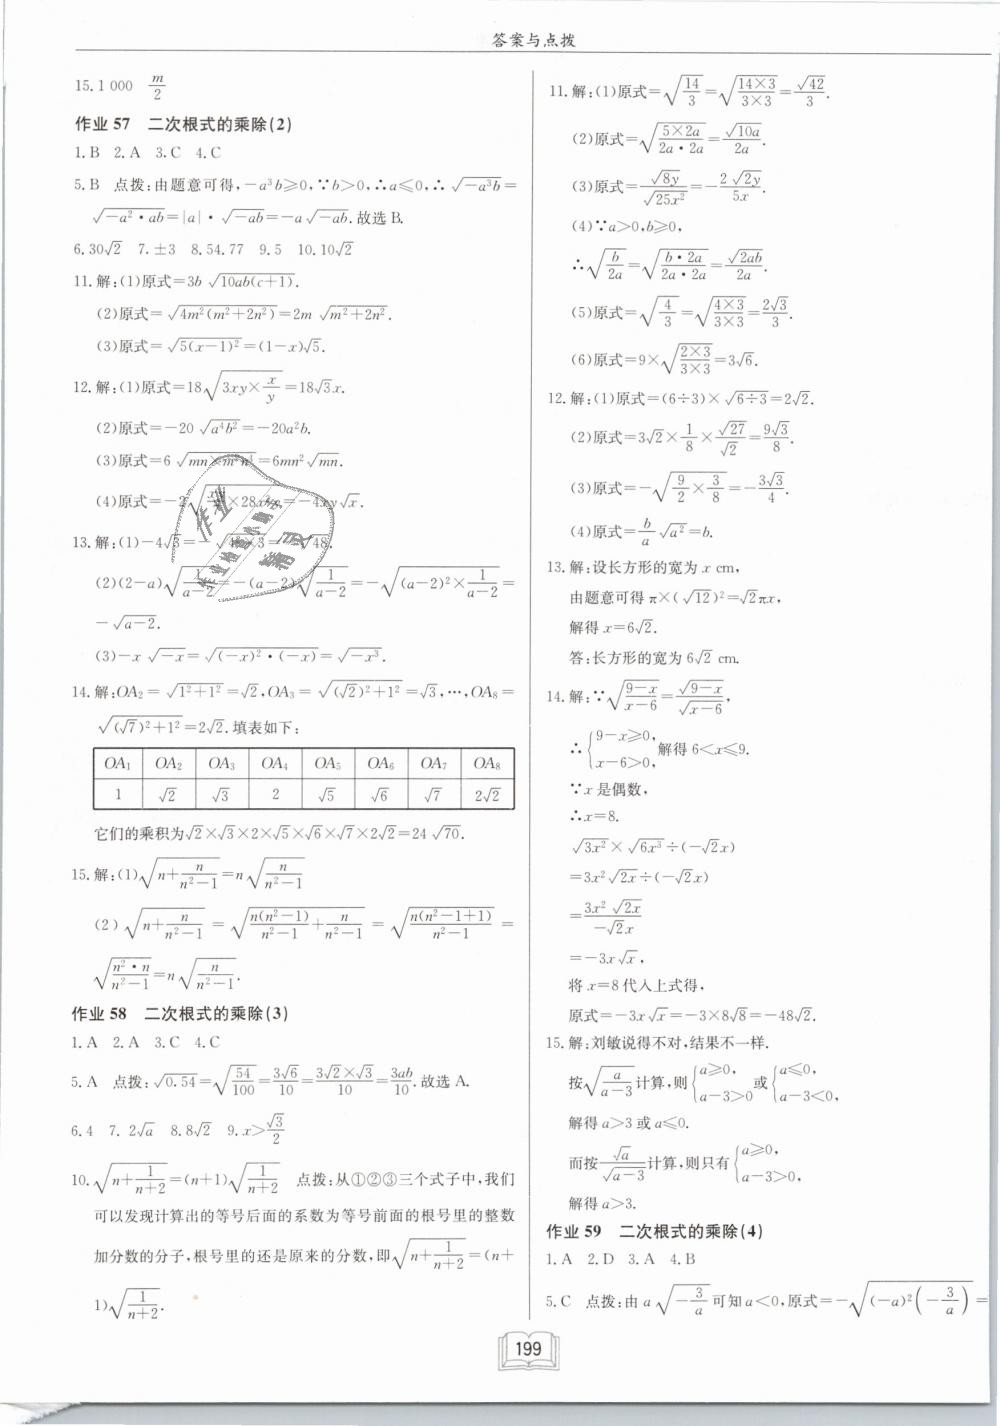 答案与点拨
15.1 000 m/2
作业 57 二次根式的乘除(2)
1.B 2.A 3.C 4.C
5.B 点拨:由题意可得,-a³b≥0,∵b>0,∴a≤0,∴√(-a³b)=
√(-a²·ab)=|a|·√(-ab)=-a√(-ab).故选 B.
6.30√2 7.±3 8.54.77 9.5 10.10√2
11.解:(1)原式=3b√(10ab(c+1)).
(2)原式=√(4m²(m²+2n²))=2m√(m²+2n²).
(3)原式=√(5(x-1)²)=(1-x)√5.
12.解:(1)原式=18√(3xy×x/y)=18√3x.
(2)原式=-20√(a⁴b²)=-20a²b.
(3)原式=6√(mn×m³n³)=6mn²√(mn).
(4)原式=-2 ×28 =-4xy√x.
13.解:(1)-4√3=-√(4²×3)=-√48.
(2)(2-a)√(1/(a-2))=-(a-2)√(1/(a-2))=-√((a-2)²×1/(a-2))=
-√(a-2).
(3)-x√(-x)=√((-x)²·(-x))=√(-x³).
14.解:OA₂=√(1²+1²)=√2,OA₃=√((√2)²+1²)=√3,…,OA₈=
√((√7)²+1²)=2√2.填表如下:
OA₁ OA₂ OA₃ OA₄ OA₅ OA₆ OA₇ OA₈
1 √2 √3 2 √5 √6 √7 2√2
它们的乘积为√2×√3×2×√5×√6×√7×2√2=24√70.
15.解:(1)√(n+n/(n²-1))=n√(n/(n²-1))
(2)√(n+n/(n²-1))=√(n(n²-1)/(n²-1)+n/(n²-1))=√(n(n²-1+1)/(n²-1))=
√(n²·n/(n²-1))=n√(n/(n²-1)).
作业 58 二次根式的乘除(3)
1.A 2.A 3.C 4.C
5.A 点拨:√0.54=√(54/100)=3√6/10=3√2×√3/10=3ab/10.故选 A.
6.4 7.2√a 8.8√2 9.x>√3/2
10.√(n+1/(n+2))=(n+1)√(1/(n+2)) 点拨:从①②③三个式子中,我们
可以发现计算出的等号后面的系数为等号前面的根号里的整数
加分数的分子,根号里的还是原来的分数,即√(n+1/(n+2))=(n+
1)√(1/(n+2)).
11.解:(1)原式=√(14/3)=√(14×3/3×3)=√42/3.
(2)原式=√(5×2a/2a·2a)=√(10a)/2a.
(3)原式=√(8y)/√(25x²)=-2√(2y)/5x.
(4)∵a>0,b≥0,
∴√(b/2a)=√(b·2a/2a·2a)=√(2ab)/2a.
(5)原式=√(4/3)=√(4×3/3×3)=2√3/3.
(6)原式=9×√(2×3/3×3)=3√6.
12.解:(1)原式=(6÷3)×√(6÷3)=2√2.
(2)原式=3√2×1/8×√27/√2=9√3/8.
(3)原式=-√(9/2×3/8)=-3√3/4.
(4)原式=b/a√(a²)=b.
13.解:设长方形的宽为 x cm,
由题意可得 π×(√12)²=√2πx,
解得 x=6√2.
答:长方形的宽为 6√2 cm.
14.解:∵√((9-x)/(x-6))=√(9-x)/√(x-6),
∴{9-x≥0, x-6>0, 解得 6<x≤9.
∵x 是偶数,
∴x=8.
√(3x²)×√(6x³)÷(-√2x)
=3x²√(2x)÷(-√2x)
=3x²√(2x)/-√2x
=-3x√x,
将 x=8 代入上式得,
原式=-3x√x=-3×8√8=-48√2.
15.解:刘敏说得不对,结果不一样.
按√(a/(a-3))计算,则{a≥0, a-3>0 或{a≤0, a-3<0,
解得 a>3 或 a≤0.
而按√a/√(a-3)计算,则只有{a≥0, a-3>0,
解得 a>3.
作业 59 二次根式的乘除(4)
1.A 2.D 3.A 4.B
5.C 点拨:由 a√(-3/a)可知 a<0,原式=-√((-a)²(-3/a))=
199